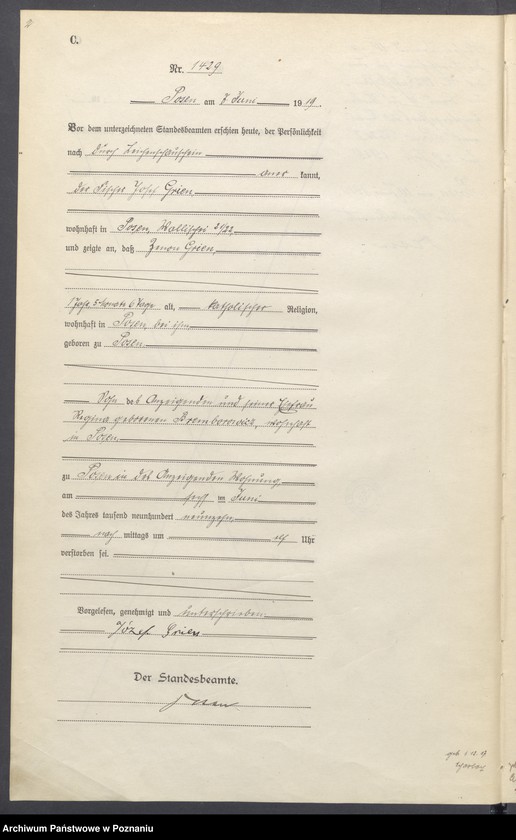 C.
Nr. 1429
Posen am 7 Juni 1919.
Vor dem unterzeichneten Standesbeamten erschien heute, der Persönlichkeit
nach durch Leichenschauschein
aner kannt,
der Fischer Josef Grien
wohnhaft in Posen, Wallischei 21/22
und zeigte an, daß Zenon Grien,
1 Jahr 5 Monate 6 Tage alt, katholischer Religion,
wohnhaft in Posen bei ihm
geboren zu Posen
Sohn des Anzeigenden und seiner Ehefrau
Regina geborenen wohnhaft
in Posen
zu Posen in des Anzeigenden Wohnung
am im Juni
des Jahres tausend neunhundert neunzehn
nach mittags um elf Uhr
verstorben sei.
Vorgelesen, genehmigt und unterschrieben
Józef Grien
Der Standesbeamte.
Archiwum Państwowe w Poznaniu